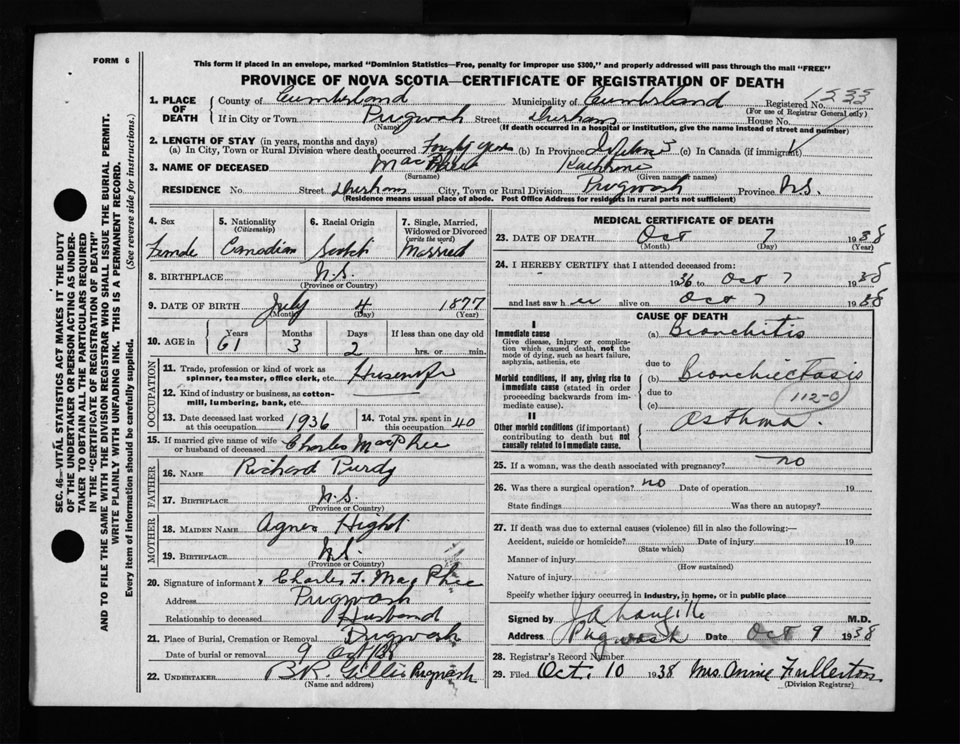 FORM 6
This form if placed in an envelope, marked "Dominion Statistics—Free, penalty for improper use $300," and properly addressed will pass through the mail "FREE"
PROVINCE OF NOVA SCOTIA—CERTIFICATE OF REGISTRATION OF DEATH
1. PLACE OF DEATH
County of Cumberland Municipality of Cumberland Registered No.
(For use of Registrar General only)
If in City or Town Pugwash Street Durham House No.
(Name) (If death occurred in a hospital or institution, give the name instead of street and number)
2. LENGTH OF STAY (in years, months and days)
(a) In City, Town or Rural Division where death occurred (b) In Province (c) In Canada (if immigrant)
3. NAME OF DECEASED MacPhee
(Surname) (Given name or names)
RESIDENCE No. Street Durham City, Town or Rural Division Pugwash Province N.S.
(Residence means usual place of abode. Post Office Address for residents in rural parts not sufficient)
4. Sex
Female
5. Nationality
(Citizenship)
Canadian
6. Racial Origin
Scotch
7. Single, Married, Widowed or Divorced
(write the word)
Married
8. BIRTHPLACE N.S.
(Province or Country)
9. DATE OF BIRTH July 4 1877
(Month) (Day) (Year)
10. AGE in Years Months Days If less than one day old
61 3 2 hrs. or min.
OCCUPATION
11. Trade, profession or kind of work as spinner, teamster, office clerk, etc. Husewife
12. Kind of industry or business, as cotton-mill, lumbering, bank, etc.
13. Date deceased last worked at this occupation 1936
14. Total yrs. spent in this occupation 40
15. If married give name of wife or husband of deceased Charles MacPhee
FATHER
16. NAME Richard Purdy
17. BIRTHPLACE N.S.
(Province or Country)
MOTHER
18. MAIDEN NAME Agnes Hight
19. BIRTHPLACE N.S.
(Province or Country)
20. Signature of informant x Charles F. MacPhee
Address Pugwash
Relationship to deceased Husband
21. Place of Burial, Cremation or Removal Pugwash
Date of burial or removal 9 Oct 38
22. UNDERTAKER B.R. Gillis Pugwash
(Name and address)
MEDICAL CERTIFICATE OF DEATH
23. DATE OF DEATH Oct 7 1938
(Month) (Day) (Year)
24. I HEREBY CERTIFY that I attended deceased from:
1936 to Oct 7 1938
and last saw her alive on Oct 7 1938
CAUSE OF DEATH
I
Immediate cause
Give disease, injury or complication which caused death, not the mode of dying, such as heart failure, asphyxia, asthenia, etc
(a) Bronchitis
due to
Morbid conditions, if any, giving rise to immediate cause (stated in order proceeding backwards from immediate cause).
(b) Bronchiectasis
due to
(c)
112-0
II
Other morbid conditions (if important) contributing to death but not causally related to Immediate cause.
Asthma.
25. If a woman, was the death associated with pregnancy? no
26. Was there a surgical operation? no Date of operation 19
State findings Was there an autopsy?
27. If death was due to external causes (violence) fill in also the following:—
Accident, suicide or homicide? Date of injury 19
(State which)
Manner of injury
(How sustained)
Nature of injury
Specify whether injury occurred in industry, in home, or in public place
Signed by M.D.
Address Pugwash Date Oct 9 1938
28. Registrar's Record Number
29. Filed Oct. 10 1938 Mrs. Annie Fullerton
(Division Registrar)
SEC. 46—VITAL STATISTICS ACT MAKES IT THE DUTY
OF THE UNDERTAKER OR PERSON ACTING AS UNDER-
TAKER TO OBTAIN ALL THE PARTICULARS REQUIRED
IN THE "CERTIFICATE OF REGISTRATION OF DEATH"
AND TO FILE THE SAME WITH THE DIVISION REGISTRAR WHO SHALL ISSUE THE BURIAL PERMIT.
WRITE PLAINLY WITH UNFADING INK. THIS IS A PERMANENT RECORD.
Every item of information should be carefully supplied. (See reverse side for instructions.)